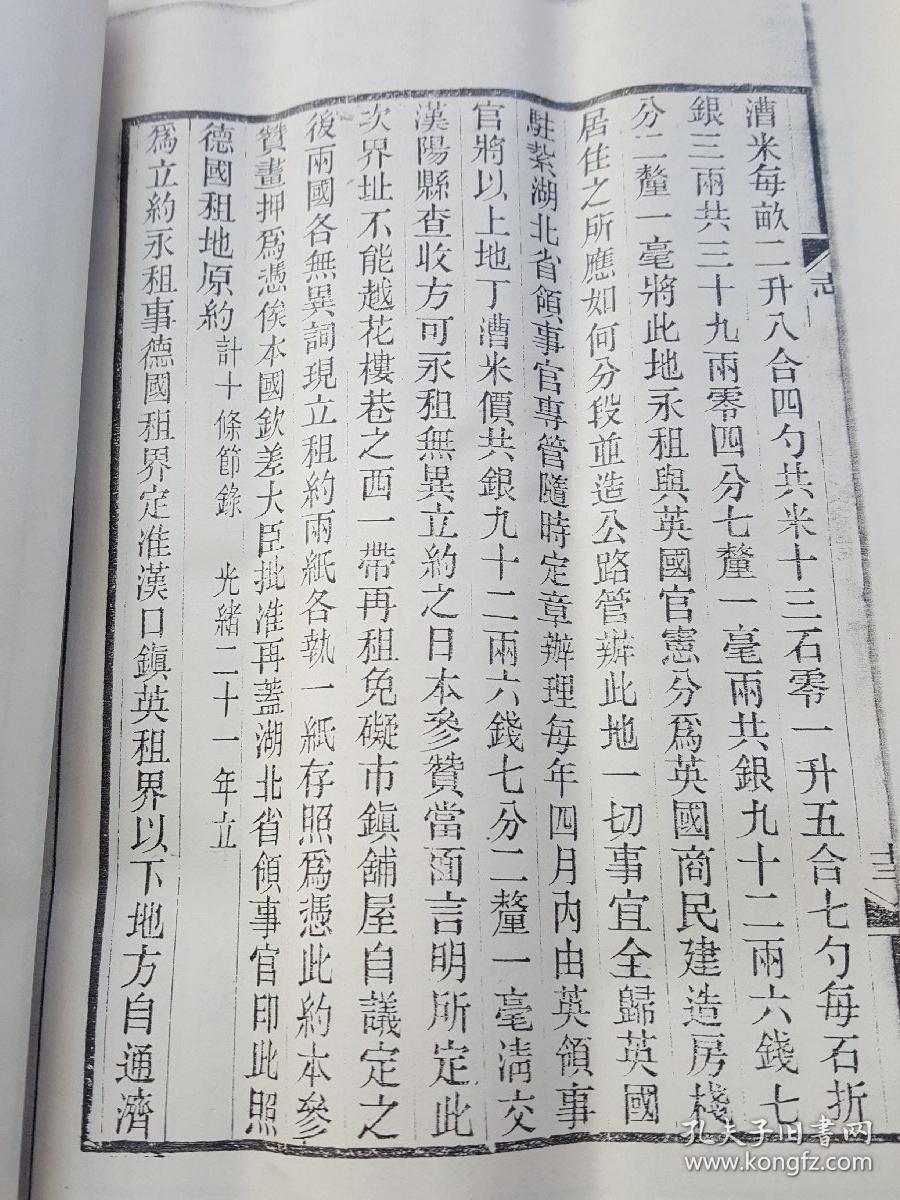 漕米每畝二升八合四勺共米十三石零一升五合七勺每石折
銀三兩共三十九兩零四分七釐一毫兩共銀九十二兩六錢七
分二釐一毫將此地永租與英國官憲分爲英國商民建造房棧
居住之所應如何分段並造公路管辦此地一切事宜全歸英國
駐紮湖北省領事官專管隨時定章辦理每年四月內由英領事
官將以上地丁漕米價共銀九十二兩六錢七分二釐一毫淸交
漢陽縣查收方可永租無異立約之日本參贊當面言明所定此
次界址不能越花樓巷之西一帶再租免礙市鎭舖屋自議定之
後兩國各無異詞現立租約兩紙各執一紙存照爲憑此約本參
贊畫押爲憑俟本國欽差大臣批准再蓋湖北省領事官印此照
德國租地原約計十條節錄 光緖二十一年立
爲立約永租事德國租界定准漢口鎭英租界以下地方自通濟
志
孔夫子旧书网
www.kongfz.com